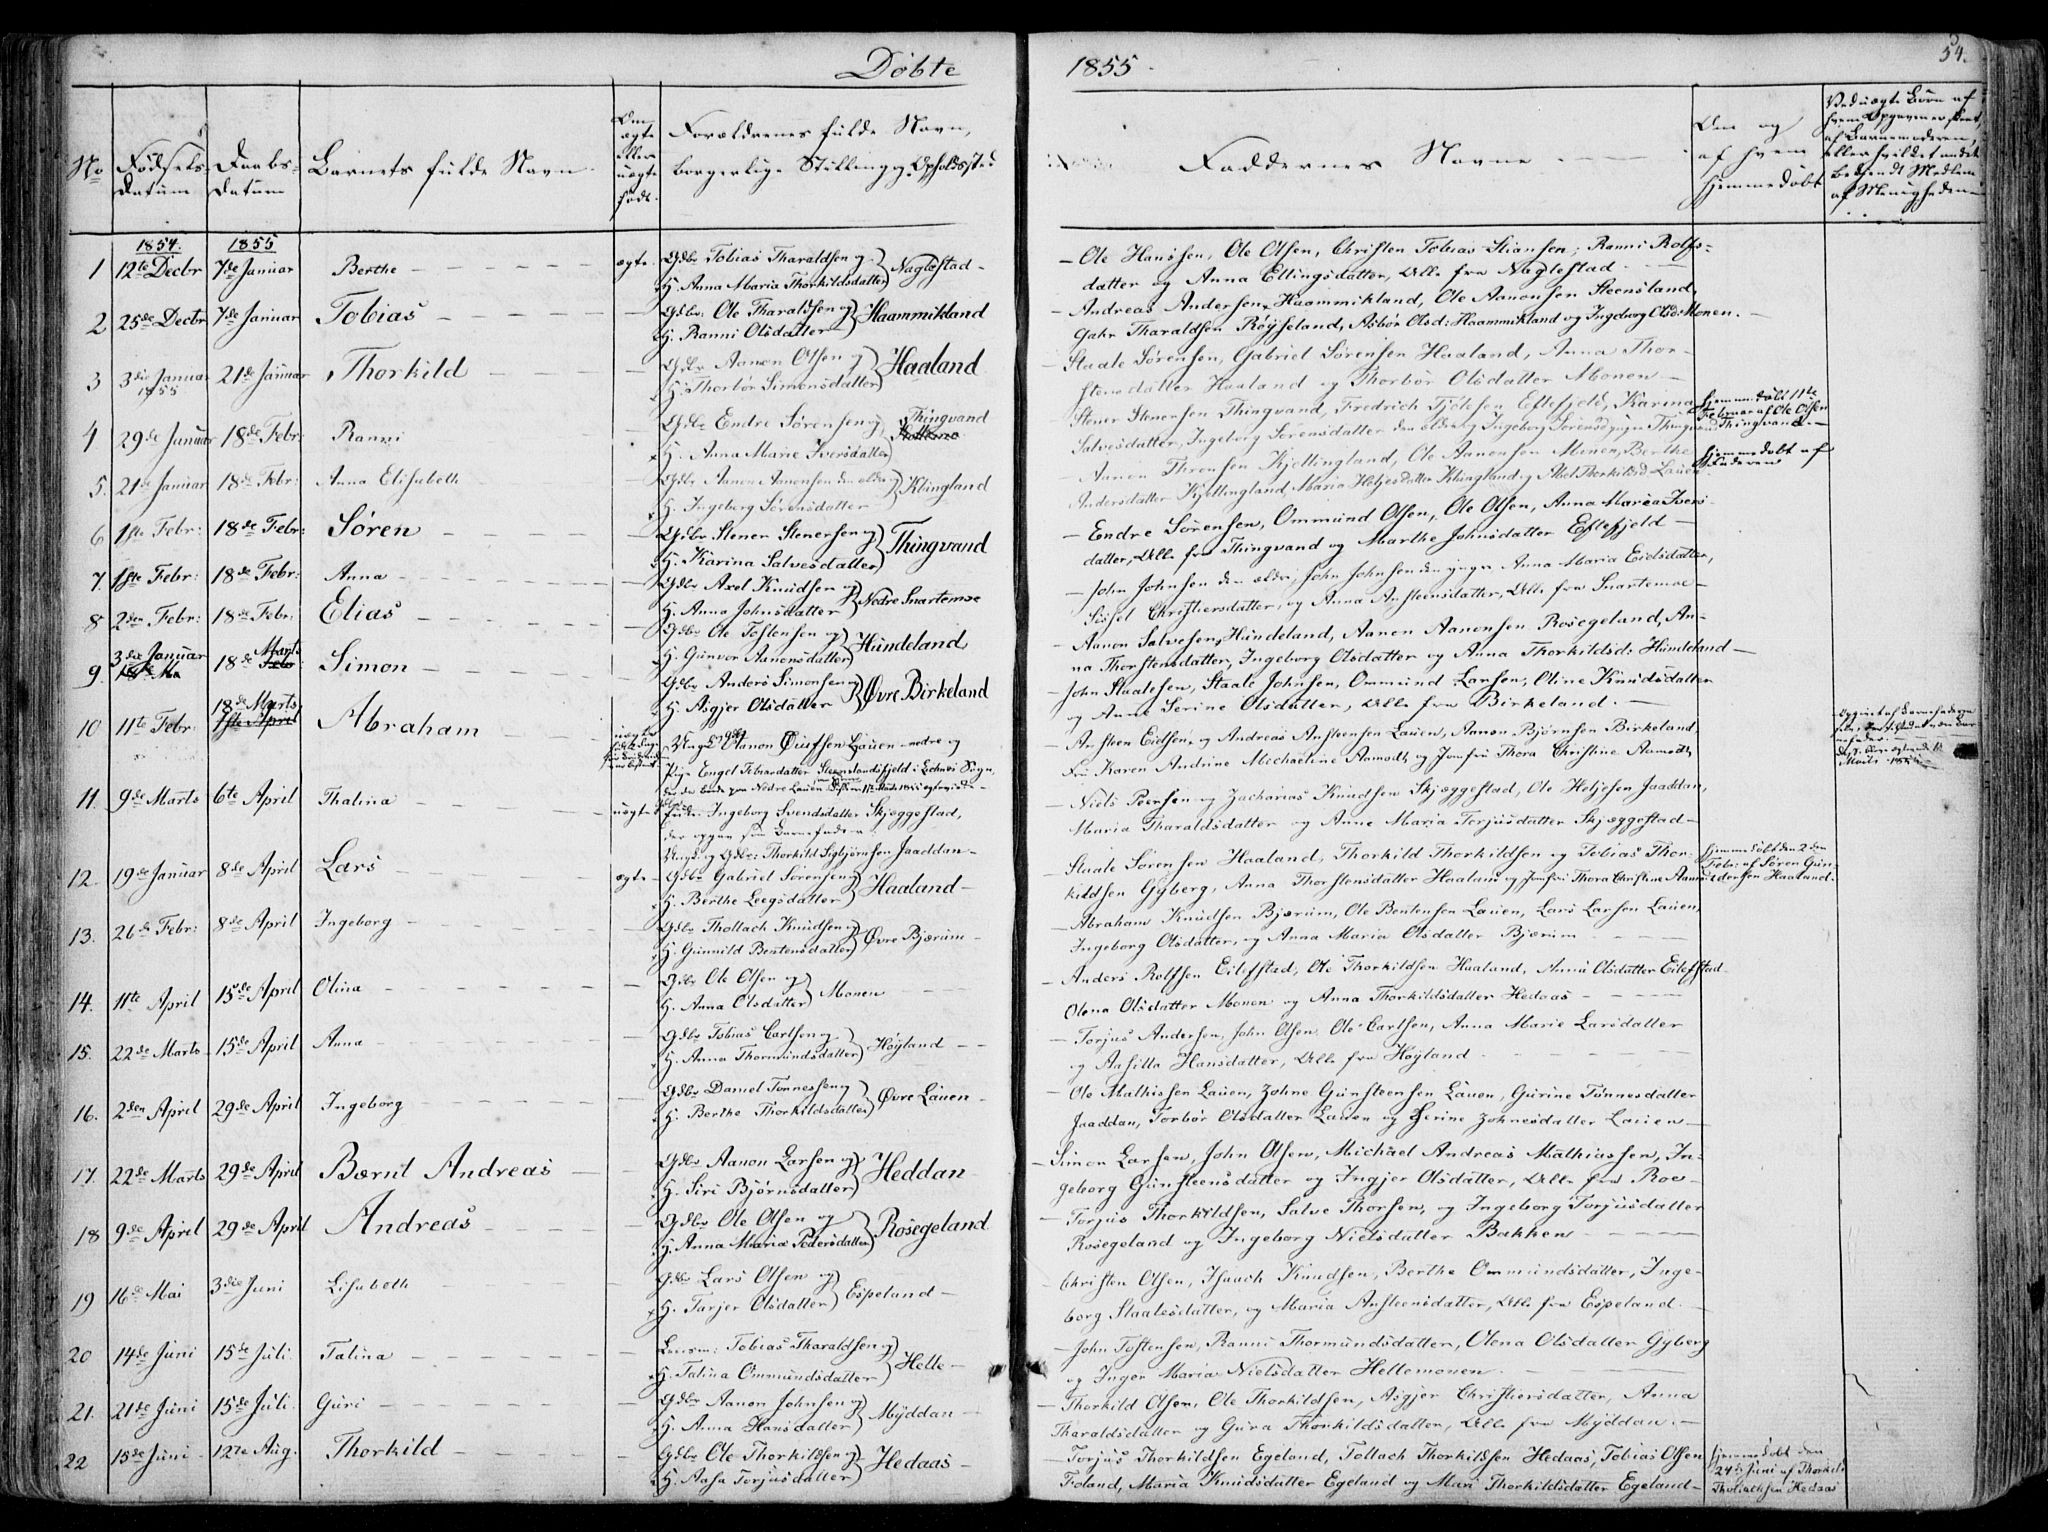 Döbte
1855
54.
No
Födsels-
Datum
Daabs-
Datum
Barnets fulde Navn
Om
ægte
eller
uægte
født.
Forældrenes fulde Navn,
borgerlige Stilling og Opholdssted
Faddernes Navne
Om og
af hvem
hjemmedøbt
1854. 1855
1 12te Decbr 7de Januar Berthe ægte Gdbr Tobias Tharaldsen og
H. Anna Maria Thorkildsdatter Naglestad
Ole Hansen, Ole Olsen, Christen Tobias Stiansen, Ranni Rolfs-
datter og Anna Ellingsdatter, Alle fra Naglestad
2 25de Decbr 7de Januar Tobias Gdbr. Ole Tharaldsen og
H. Ranni Olsdatter Haammikland
Andreas Andersen Haammikland, Ole Aanonsen Steensland,
Tharaldsen Röyseland, Asbör Olsd: Haammikland og Ingeborg Olsd: Monen.
3 3die Januar 1855 21de Januar Thorkild Gdbr Aanen Olsen og
H. Thorbör Simonsdatter Haaland
Staale Sörensen, Gabriel Sörensen Haaland, Anna Thor-
stensdatter Haaland og Thorbör Olsdatter Monen
4 29de Januar 18de Febr: Ranni Gdbr Endre Sörensen og
H. Anna Marie Iversdatter Thingvand
Stener Stenersen Thingvand, Fredrich Eftefjeld, Karina
Salvesdatter, Ingeborg Sörensdatter den ældre og Ingeborg Thingvand
hjemmedöbt 11te
Februar af Ole Olsen
Thingvand.
5. 21de Januar 18de Febr: Anna Elisabeth Gdbr Aanon Aanonsen den ældre og
H. Ingeborg Sörensdatter Klingland
Aanon Thronsen Kjellingland, Ole Aanonsen Monen, Berthe
Andersdatter Kjellingland, Maria Klingland og
hjemmedöbt af
Faderen
6 1ste Febr: 18de Febr: Sören Gdbr Stener Stenersen og
H. Karina Salvesdatter Thingvand
Endre Sörensen, Ommund Olsen, Ole Olsen, Anna Maria Ivers-
datter, Alle fra Thingvand og Marthe Johnsdatter Eftefjeld
7. 1ste Febr: 18de Febr: Anna Gdbr Axel Knudsen og
H. Anna Johnsdatter Nedre Snartemoe
John Johnsen den ældre, John Johnsen den yngre, Anna Maria Eidsdatter,
Sissel Christiersdatter, og Anna Ansteensdatter, Alle fra Snartemoe
8 2den Febr: 18de Febr: Elias Gdbr Ole Tostensen og
H. Gunvor Aanensdatter Hundeland
Aanon Salvesen Hundeland, Aanen Aanonsen Rosegeland, An-
na Thorstensdatter, Ingeborg Olsdatter og Anna Thorkildsd: Hundeland
9. 3die Januar 18de Marts Simon Gdbr Anders Simonsen og
H. Asgjer Olsdatter Övre Birkeland
John Staalesen, Staale Johnsen, Ommund Larsen, Oline Knudsdatter
og Anne Serine Olsdatter, Alle fra Birkeland.
10 11te Febr. 18de Marts Abraham uægte Lauen nedre og
Pige Engel
Ansteen Eidsen og Andreas Ansteensen Lauen, Aanon Bjørnsen Birkeland,
Fru Karen Andrine Michaeline Aamodt og Jomfru Thora Christine Aamodt
11. 9de Marts 6te April Thalina uægte Ingeborg Svendsdatter Skjæggestad,
der opgav som Barnefader
Ungk. og Gdbr: Thorkild Sigbjørnsen Jaaddan
Niels Peersen og Zacharias Knudsen Skjæggestad, Ole Heljesen Jaaddan,
Maria Tharaldsdatter og Anne Maria Torjusdatter Skjæggestad
12. 19de Januar 8de April Lars ægte Gdbr Gabriel Sörensen og
H. Berthe Leegsdatter Haaland
Staale Sörensen Haaland, Thorkild Thorkildsen og Tobias Thor-
kildsen Gyberg, Anna Thorstensdatter Haaland og Jomfru Thora Christine Aamodt
hjemmedöbt den 2den
Febr: af Sören Gun-
dersen Haaland
13. 26de Febr: 8de April Ingeborg Gdbr Thollach Knudsen og
H. Gunvild Bentensdatter Övre Bjærum
Abraham Knudsen Bjærum, Ole Bentensen Lauen, Lars Larsen Lauen,
Ingeborg Olsdatter, og Anna Maria Olsdatter Bjærum
14. 11te April 15de April Olina Gdbr Ole Olsen og
H. Anna Olsdatter Monen
Anders Rolfsen Eilefstad, Ole Thorkildsen Haaland, Anna Olsdatter Eilefstad
Olena Olsdatter Monen og Anna Thorkildsdatter Hedaas
15. 22de Marts 15de April Anna Gdbr Tobias Carlsen og
H. Anna Thormundsdatter Höyland
Torjus Andersen, John Olsen, Ole Carlsen, Anna Marie Larsdatter
og Aasilla Hansdatter, Alle fra Höyland
16. 2den April 29de April Ingeborg Gdbr Daniel Tönnessen og
H. Berthe Thorkildsdatter Övre Lauen
Ole Mathissen Lauen, Zohne Gunsteensen Lauen, Gurine Tönnesdatter
Jaaddan, Torbör Olsdatter Lauen og Serine Zohnesdatter Lauen
17. 22de Marts 29de April Bærnt Andreas Gdbr Aanon Larsen og
H. Siri Bjørnsdatter Heddan
Simon Larsen, John Olsen, Michael Andreas Mathiassen, In-
geborg Gunsteensdatter og Ingjer Olsdatter, Alle fra Roe
18 9de April 29de April Andreas Gdbr Ole Olsen og
H. Anna Maria Pedersdatter Rosegeland
Torjus Thorkildsen, Salve Thorsen, og Ingeborg Torjusdatter
Rosegeland og Ingeborg Nielsdatter Bakken
19 16de Mai 3die Juni Lisabeth Gdbr Lars Olsen og
H. Tarjer Olsdatter Espeland
Christen Olsen, Isaach Knudsen, Berthe Ommundsdatter, Inge-
borg Staalesdatter, og Maria Ansteensdatter, Alle fra Espeland.
20 14de Juni 15de Juli Talina Lensm: Tobias Tharaldsen og
H. Talina Ommundsdatter Helle
John Tostensen, Ranni Thormundsdatter, Olena Olsdatter Gyberg
og Inger Maria Nielsdatter Hellemonen
21. 21de Juni 15de Juli. Guri Gdbr Aanon Johnsen og
H. Anna Hansdatter Myddan
Thorkild Olsen, Ole Thorkildsen, Asgjer Christiersdatter, Anna
Tharaldsdatter og Gura Thorkildsdatter, Alle fra Myddan.
22 15de Juni 12te Aug. Thorkild Gdbr Ole Thorkildsen og
H. Aasa Torjusdatter Hedaas
Torjus Thorkildsen Egeland, Tollach Thorkildsen Hedaas, Tobias Olsen
Foland, Maria Knudsdatter Egeland og Mari Thorkildsdatter Egeland
hjemmedöbt den
24de Juni af Thorkild
Thollachsen Hedaas